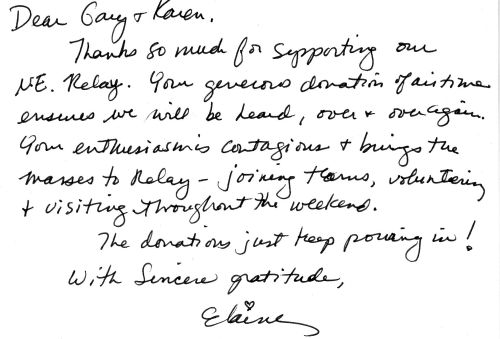 Dear Gary & Karen,
Thanks so much for supporting our
N.E. Relay. Your generous donation of airtime
ensures we will be heard, over & over again.
Your enthusiasm is contagious & brings the
masses to Relay – joining teams, volunteering
& visiting throughout the weekend.
The donations just keep pouring in!
With sincere gratitude,
Elaine